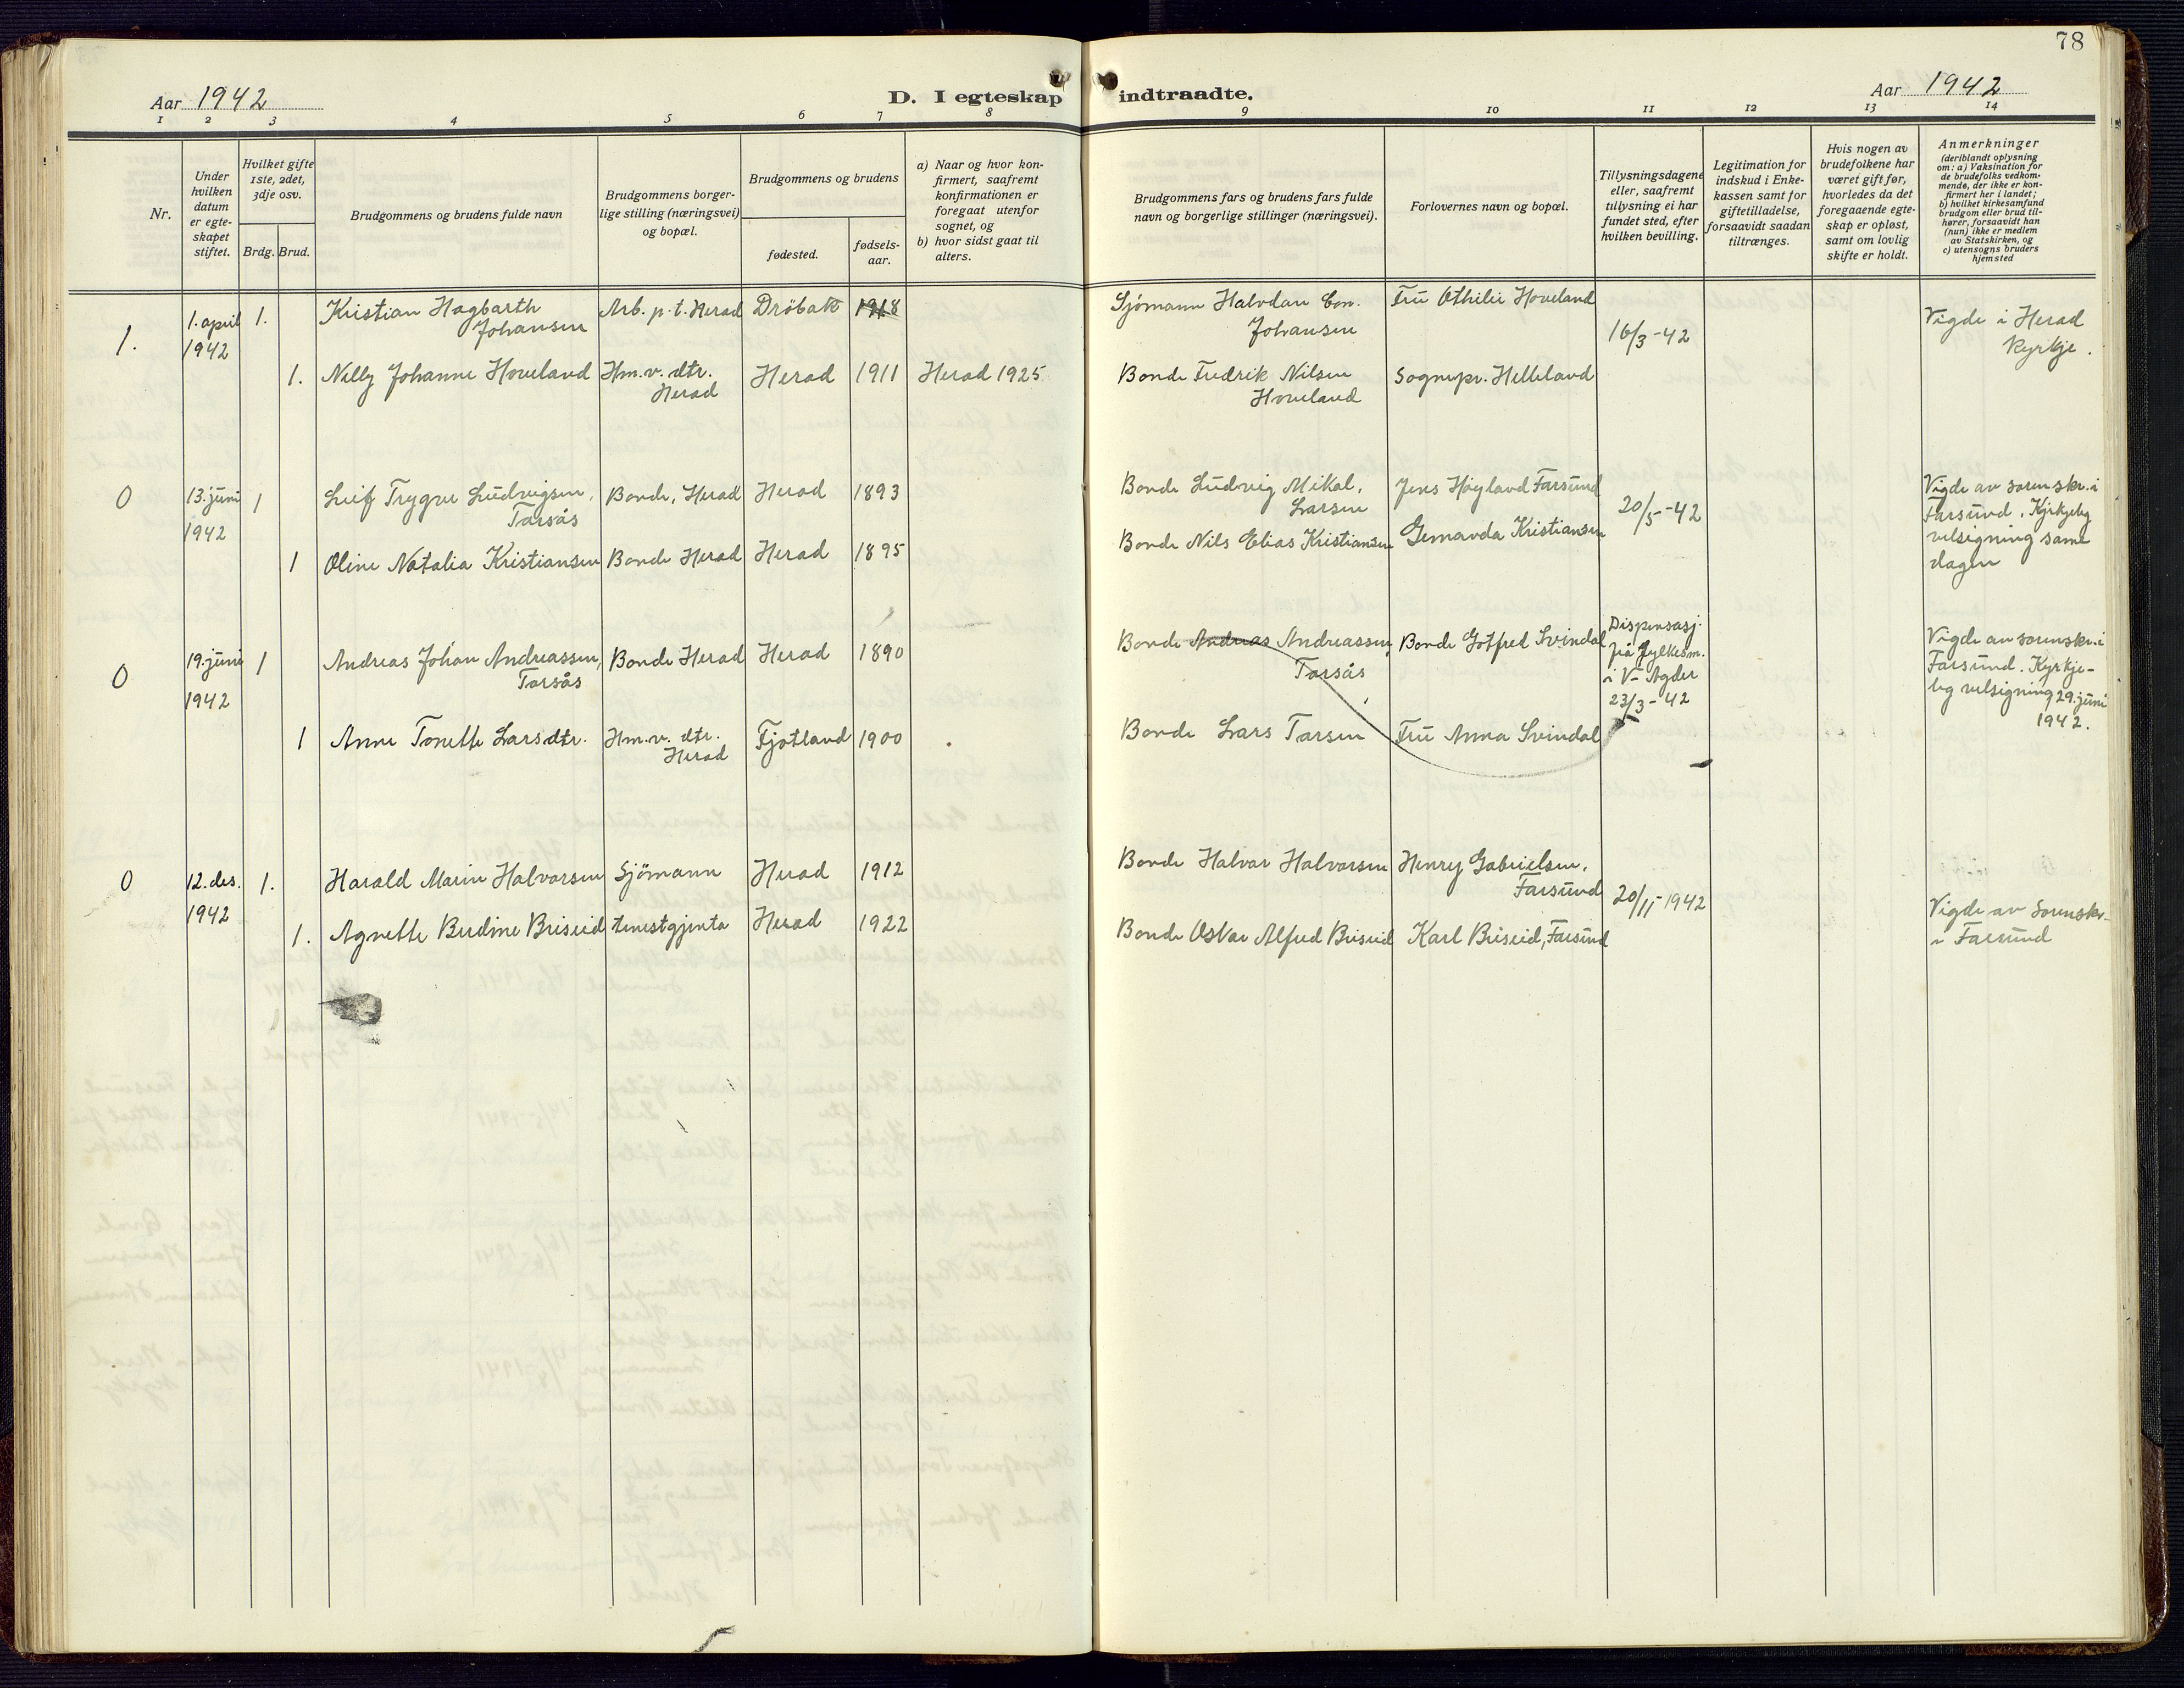 78
Aar 1942
D. I egteskap indtraadte.
Aar 1942
1 2 3 4 5 6 7 8 9 10 11 12 13 14
Nr.
Under hvilken datum er egteskapet stiftet.
Hvilket gifte 1ste, 2det, 3dje osv.
Brdg. Brud.
Brudgommens og brudens fulde navn
Brudgommens borgerlige stilling (næringsvei) og bopæl.
Brudgommens og brudens
fødested.
fødselsaar.
a) Naar og hvor konfirmert, saafremt konfirmationen er foregaat utenfor sognet, og
b) hvor sidst gaat til alters.
Brudgommens fars og brudens fars fulde navn og borgerlige stillinger (næringsvei).
Forlovernes navn og bopæl.
Tillysningsdagene eller, saafremt tillysning ei har fundet sted, efter hvilken bevilling.
Legitimation for indskud i Enkekassen samt for giftetilladelse, forsaavidt saadan tiltrænges.
Hvis nogen av brudefolkene har været gift før, hvorledes da det foregaaende egteskap er opløst, samt om lovlig skifte er holdt.
Anmerkninger
(deriblandt oplysning om: a) Vaksination for de brudefolks vedkommende, der ikke er konfirmert her i landet; b) hvilket kirkesamfund brudgom eller brud tilhører, forsaavidt han (hun) ikke er medlem av Statskirken, og c) utensogns bruders hjemsted
1.
1. april 1942
1.
Kristian Hagbarth Johansen
Arb. p.t. Herad
Drøbak
1918
Sjømann Halvdan Con. Johansen
Fru Othilie Hoveland
16/3-42
Vigde i Herad Kyrkje.
1.
Nelly Johanne Hoveland
Hm.v. dtr. Herad
Herad
1911
Herad 1925
Bonde Fredrik Nilsen Hoveland
Sognepr. Helleland
0
13. juni 1942
1
Leif Trygve Ludvigsen, Tarsås
Bonde, Herad
Herad
1893
Bonde Ludvig Mikal, Larsen
Jens Høyland Farsund
20/5-42
Vigde av sorenskr. i Farsund. Kyrkjeleg velsigning same dagen
1
Oline Natalia Kristiansen
Bonde Herad
Herad
1895
Bonde Nils Elias Kristiansen
Gemanda Kristiansen
0
19. juni 1942
1
Andreas Johan Andreassen, Tarsås
Bonde Herad
Herad
1890
Bonde Andreas Andreassen, Tarsås
Bonde Gotfred Svindal
Dispensasj. frå fylkesm. i V-Agder 23/3-42
Vigde av sorenskr. i Farsund. Kyrkjeleg velsigning 29. juni 1942.
1
Anne Tonette Larsdtr.
Hm.v. dtr. Herad
Fjotland
1900
Bonde Lars Tarsen
Fru Anna Svindal
0
12. des. 1942
1.
Harald Marin Halvorsen
Sjømann
Herad
1912
Bonde Halvar Halvorsen
Henry Gabrielsen, Farsund
20/11-1942
Vigde av Sorenskr. i Farsund
1.
Agnette Berdine Briseid
tenestgjenta
Herad
1922
Bonde Oskar Alfred Briseid
Karl Briseid, Farsund